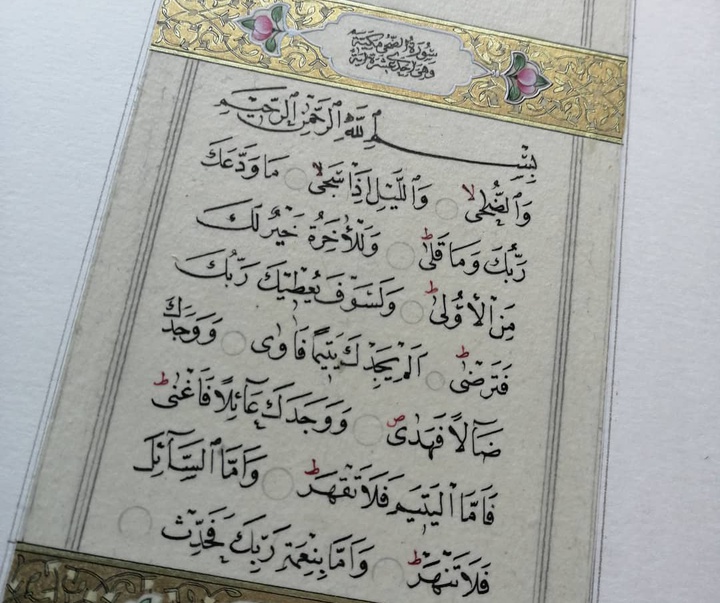 سُورَةُ الضُّحٰى مَكِّيَّةٌ
وَهِيَ اِحْدٰى عَشْرَةَ اٰيَةً
بِسْمِ ٱللّٰهِ ٱلرَّحْمٰنِ ٱلرَّحِيمِ
وَٱلضُّحٰىۙ وَٱلَّيْلِ اِذَا سَجٰىۙ مَا وَدَّعَكَ
رَبُّكَ وَمَا قَلٰىؕ وَلَلْاٰخِرَةُ خَيْرٌ لَكَ
مِنَ الْاُولٰىؕ وَلَسَوْفَ يُعْطِيكَ رَبُّكَ
فَتَرْضٰىؕ اَلَمْ يَجِدْكَ يَتِيمًا فَاٰوٰى وَوَجَدَكَ
ضَٓالًّا فَهَدٰىۖ وَوَجَدَكَ عَٓائِلًا فَاَغْنٰىؕ
فَاَمَّا الْيَتِيمَ فَلَا تَقْهَرْؕ وَاَمَّا ٱلسَّٓائِلَ
فَلَا تَنْهَرْؕ وَاَمَّا بِنِعْمَةِ رَبِّكَ فَحَدِّثْ